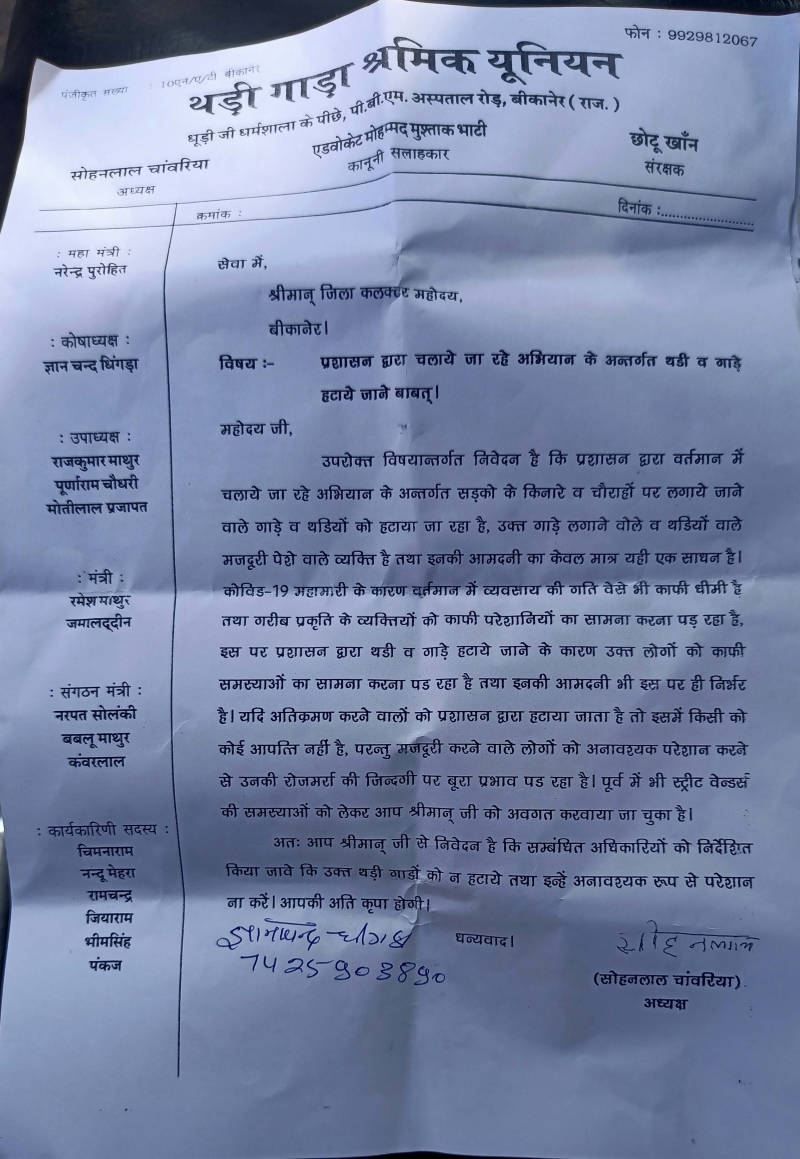 फोन : 9929812067
पंजीकृत संख्या : 10एन/ए/टी बीकानेर
थड़ी गाड़ा श्रमिक यूनियन
धूड़ी जी धर्मशाला के पीछे, पी.बी.एम. अस्पताल रोड़, बीकानेर ( राज. )
सोहनलाल चांवरिया
अध्यक्ष
एडवोकेट मोहम्मद मुश्ताक भाटी
कानूनी सलाहकार
छोटू खाँन
संरक्षक
क्रमांक :
दिनांक :..........................
: महा मंत्री :
नरेन्द्र पुरोहित
: कोषाध्यक्ष :
ज्ञान चन्द धिंगड़ा
: उपाध्यक्ष :
राजकुमार माथुर
पूर्णाराम चौधरी
मोतीलाल प्रजापत
: मंत्री :
रमेश माथुर
जमालद्दीन
: संगठन मंत्री :
नरपत सोलंकी
बबलू माथुर
कंवरलाल
: कार्यकारिणी सदस्य :
चिमनाराम
नन्दू मेहरा
रामचन्द्र
जियाराम
भीमसिंह
पंकज
सेवा में,
श्रीमान् जिला कलक्टर महोदय,
बीकानेर।
विषय :- प्रशासन द्वारा चलाये जा रहे अभियान के अन्तर्गत थडी व गाड़े
हटाये जाने बाबत्।
महोदय जी,
उपरोक्त विषयान्तर्गत निवेदन है कि प्रशासन द्वारा वर्तमान में
चलाये जा रहे अभियान के अन्तर्गत सड़को के किनारे व चौराहों पर लगाये जाने
वाले गाड़े व थडियों को हटाया जा रहा है, उक्त गाड़े लगाने वोले व थडियों वाले
मजदूरी पेशे वाले व्यक्ति है तथा इनकी आमदनी का केवल मात्र यही एक साधन है।
कोविड-19 महामारी के कारण वर्तमान में व्यवसाय की गति वेसे भी काफी धीमी है
तथा गरीब प्रकृति के व्यक्तियों को काफी परेशानियों का सामना करना पड़ रहा है,
इस पर प्रशासन द्वारा थडी व गाड़े हटाये जाने के कारण उक्त लोगों को काफी
समस्याओं का सामना करना पड रहा है तथा इनकी आमदनी भी इस पर ही निर्भर
है। यदि अतिक्रमण करने वालों को प्रशासन द्वारा हटाया जाता है तो इसमें किसी को
कोई आपत्ति नहीं है, परन्तु मजदूरी करने वाले लोगों को अनावश्यक परेशान करने
से उनकी रोजमर्रा की जिन्दगी पर बूरा प्रभाव पड रहा है। पूर्व में भी स्ट्रीट वेन्डर्स
की समस्याओं को लेकर आप श्रीमान् जी को अवगत करवाया जा चुका है।
अतः आप श्रीमान् जी से निवेदन है कि सम्बंधित अधिकारियों को निर्देशित
किया जावे कि उक्त थड़ी गाडों को न हटाये तथा इन्हें अनावश्यक रूप से परेशान
ना करें। आपकी अति कृपा होगी।
धन्यवाद।
ज्ञानचन्द धींगड़ा
7425903890
सोहनलाल
(सोहनलाल चांवरिया)
अध्यक्ष